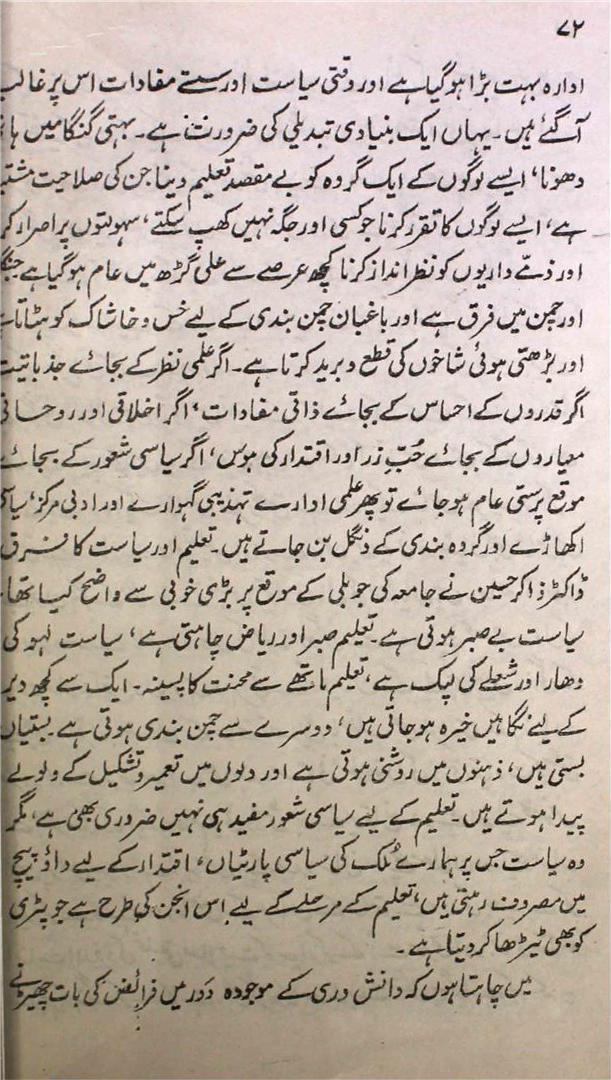 ۷۲
ادارہ بہت بڑا ہوگیا ہے اور وقتی سیاست اور سستے مفادات اس پر غالب
آگئے ہیں۔ یہاں ایک بنیادی تبدیلی کی ضرورت ہے۔ بہتی گنگا میں
دھونا، ایسے لوگوں کے ایک گروہ کو بے مقصد تعلیم دینا جن کی صلاحیت
ہے، ایسے لوگوں کا تقرر کرنا جو کسی اور جگہ نہیں کھپ سکتے، سہولتوں پر اصرار کر
اور ذمے داریوں کو نظر انداز کرنا کچھ عرصے سے علی گڑھ میں عام ہوگیا ہے
اور چمن میں فرق ہے اور باغبان چمن بندی کے لیے خس و خاشاک کو ہٹاتا
اور بڑھتی ہوئی شاخوں کی قطع و برید کرتا ہے۔ اگر علمی نظر کے بجائے جذباتیت
اگر قدروں کے احساس کے بجائے ذاتی مفادات، اگر اخلاقی اور روحانی
معیاروں کے بجائے حُبِّ زر اور اقتدار کی ہوس، اگر سیاسی شعور کے بجائے
موقع پرستی عام ہوجائے تو پھر علمی ادارے تہذیبی گہوارے اور ادبی مرکز،
اکھاڑے اور گروہ بندی کے دنگل بن جاتے ہیں۔ تعلیم اور سیاست کا فرق
ڈاکٹر ذاکر حسین نے جامعہ کی جوبلی کے موقع پر بڑی خوبی سے واضح کیا تھا۔
سیاست بے صبر ہوتی ہے۔ تعلیم صبر اور ریاض چاہتی ہے، سیاست لہو کی
دھار اور شعلے کی لپک ہے، تعلیم ماتھے سے محنت کا پسینہ۔ ایک سے کچھ دیر
کے لیے نگاہیں خیرہ ہوجاتی ہیں، دوسرے سے چمن بندی ہوتی ہے۔ بستیاں
بستی ہیں، ذہنوں میں روشنی ہوتی ہے اور دلوں میں تعمیر و تشکیل کے ولولے
پیدا ہوتے ہیں۔ تعلیم کے لیے سیاسی شعور مفید ہی نہیں ضروری بھی ہے، مگر
وہ سیاست جس پر ہمارے مُلک کی سیاسی پارٹیاں، اقتدار کے لیے داؤ پیچ
میں مصروف رہتی ہیں، تعلیم کے مرحلے کے لیے اس انجن کی طرح ہے جو پٹری
کو بھی ٹیڑھا کر دیتا ہے۔
میں چاہتا ہوں کہ دانش وری کے موجودہ دَور میں فرائض کی بات چھیڑنے